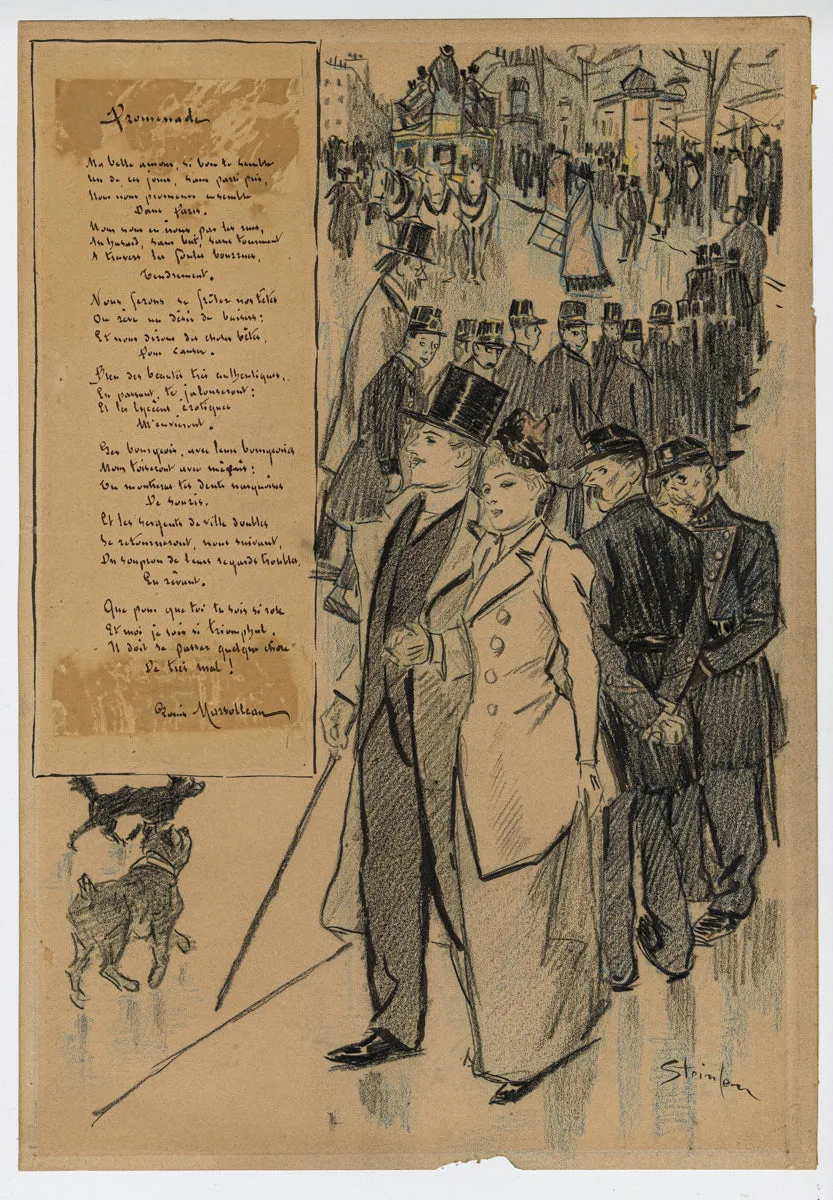 Promenade
Ma belle amour, si bon te semble
Un de ces jours, sans parti pris,
Nous nous promenons ensemble
Dans Paris.
Nous nous en irons par les rues,
Au hasard, sans but, sans tourment
A travers les foules bourrues,
Tendrement.
Nous ferons se frôler nos têtes
Ou rève un désir de baisers ;
Et nous dirons des choses bêtes,
Pour causer.
Plus des beautés très authentiques,
En passant, te jalouseront ;
Et les lycéens érotiques
M'envieront.
Les bourgeois, avec leurs bourgeoises
Nous toiseront avec mépris ;
Tu montreras tes dents narquoises
De souris.
Et les sergents de ville doubles
Se retourneront, nous suivant,
Du soupçon de leurs regards troubles,
En rêvant.
Que pour que toi tu sois si rose
Et moi je sois si triomphal.
Il doit se passer quelque chose
De très mal !
Louis Marsolleau
Steinlen